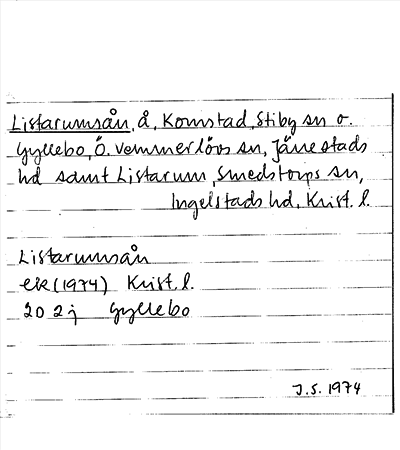 Listarumsån, å, Komstad, Stiby sn o.
Gyllebo, Ö. Vemmerlövs sn, Järrestads
hd samt Listarum, Smedstorps sn,
Ingelstads hd, Krist. l.
Listarumsån
ek (1974) Krist. l.
2D 2j Gyllebo
J.S. 1974